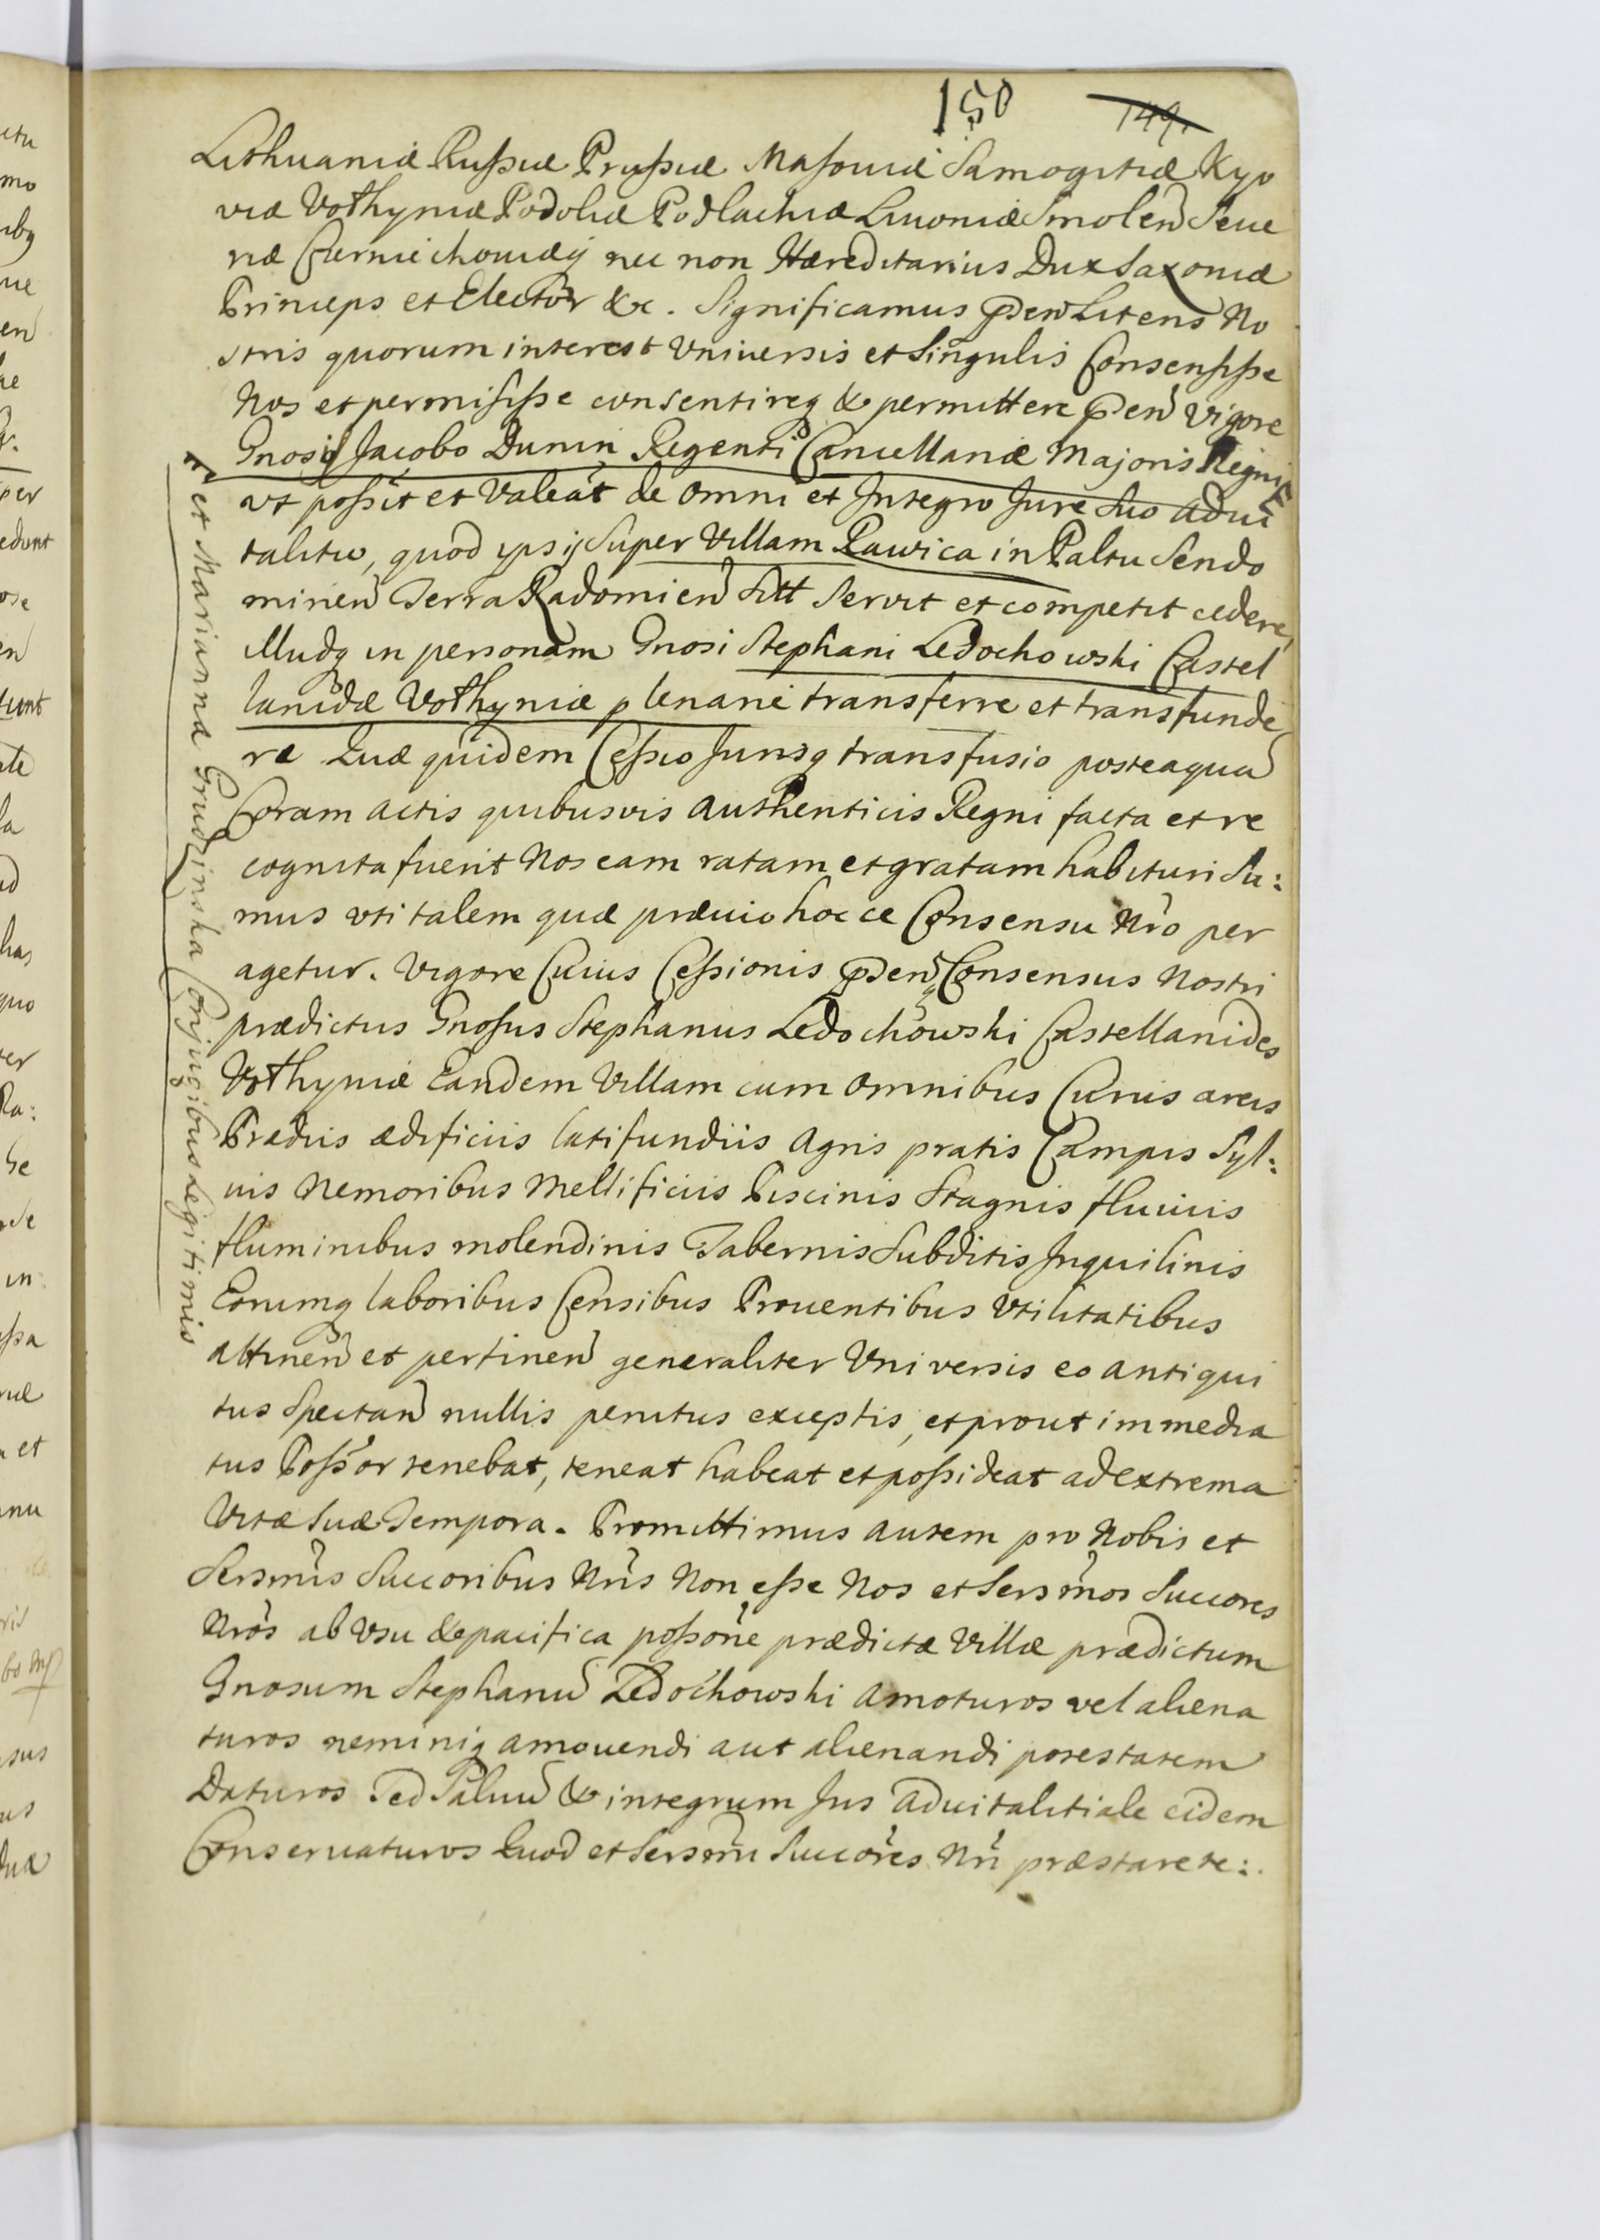 150 149.
Lithuaniæ Russiæ Prussiæ Masoviæ Samogitiæ Kyo
viæ Vothyniæ Podoliæ Podlachiæ Livoniæ Smolen Seve
riæ Czerniechoviæq nec non Hæreditarius Dux Saxoniæ
Princeps et Elector &c. Significamus pñ Literis No
stris quorum interest Universis et Singulis Consensisse
Nos et permisisse consentireq & permittere pñ Vigore
Gnosis Jacobo Dunin Regenti Cancellariæ Majoris Regni
ut possit et Valeat de Omni et Integro Jure Suo advi
talitio, quod ipsis Super Villam Rawica in Paltu Sendo
mirien Terra Radomien Sitt Servit et competit cedere,
illudq in personam Gnosi Stephani Ledochowski Castel
lanidæ Vothyniæ plenarie transferre et transfunde
re Quæ quidem Cessio Jurisq transfusio posteaqua
Coram actis quibusvis Authenticis Regni facta et re
cognita fuerit Nos eam ratam et gratam habituri Su:
mus uti talem quæ prævio hocce Consensu Nro per
agetur. Vigore Cuius Cessionis pñq Consensus Nostri
prædictus Gnosus Stephanus Ledochowski Castellanides
Vothyniæ Eandem Villam cum Omnibus Curiis areis
Prædiis ædificiis latifundiis Agris pratis Campis Syl:
vis Nemoribus Mellificiis Piscinis Stagnis fluviis
fluminibus molendinis Tabernis Subditis Inquilinis
Eorumq laboribus Censibus Proventibus Utilitatibus
attinen et pertinen generaliter Universis eo antiqui
tus Spectan nullis penitus exceptis, et prout immedia
tus Possor tenebat, teneat habeat et possideat ad extrema
Vitæ Suæ Tempora. Promittimus autem pro Nobis et
Sersmis Succoribus Nris Non esse Nos et Sersmos Succores
Nros ab Usu & pacifica possone prædictæ Villæ prædictum
Gnosum Stephanu Ledochowski Amoturos vel aliena
turos neminiq amovendi aut alienandi potestatem
Daturos Sed Salvu & integrum Jus Advitalitiale eidem
Conservaturos Quod et Sersmi Succores Nri præstare te:
et Marianna Grudzinska Conjugibus Legitimis